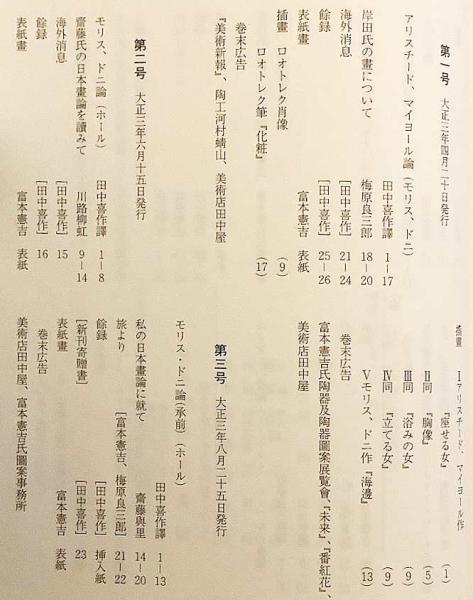 第一号 大正三年四月二十日発行
アリスチード、マイヨール論(モリス、ドニ)
田中喜作譯 1－17
岸田氏の畫について 梅原良三郎 18－20
海外消息 [田中喜作] 21－24
餘録 [田中喜作] 25－26
表紙畫 富本憲吉 表紙
插畫 ロオトレク肖像 (9)
ロオトレク筆『化粧』 (17)
巻末広告
『美術新報』、陶工河村蜻山、美術店田中屋
第二号 大正三年六月十五日発行
モリス、ドニ論(ホール) 田中喜作譯 1－8
齋藤氏の日本畫論を讀みて 川路柳虹 9－14
海外消息 [田中喜作] 15
餘録 [田中喜作] 16
表紙畫 富本憲吉 表紙
插畫 Ⅰアリスチード、マイヨール作
『座せる女』 (1)
Ⅱ同 『胸像』 (5)
Ⅲ同 『浴みの女』 (9)
Ⅳ同 『立てる女』 (9)
Ⅴモリス、ドニ作『海邊』 (13)
巻末広告
富本憲吉氏陶器及陶器圖案展覧會、『未来』、『番紅花』、
美術店田中屋
第三号 大正三年八月二十五日発行
モリス・ドニ論(承前)(ホール)
田中喜作譯 1－13
私の日本畫論に就て 齋藤與里 14－20
旅より [富本憲吉、梅原良三郎] 21－22
餘録 [田中喜作] 挿入紙
[新刊寄贈書] [田中喜作] 23
表紙畫 富本憲吉 表紙
巻末広告
美術店田中屋、富本憲吉氏圖案事務所